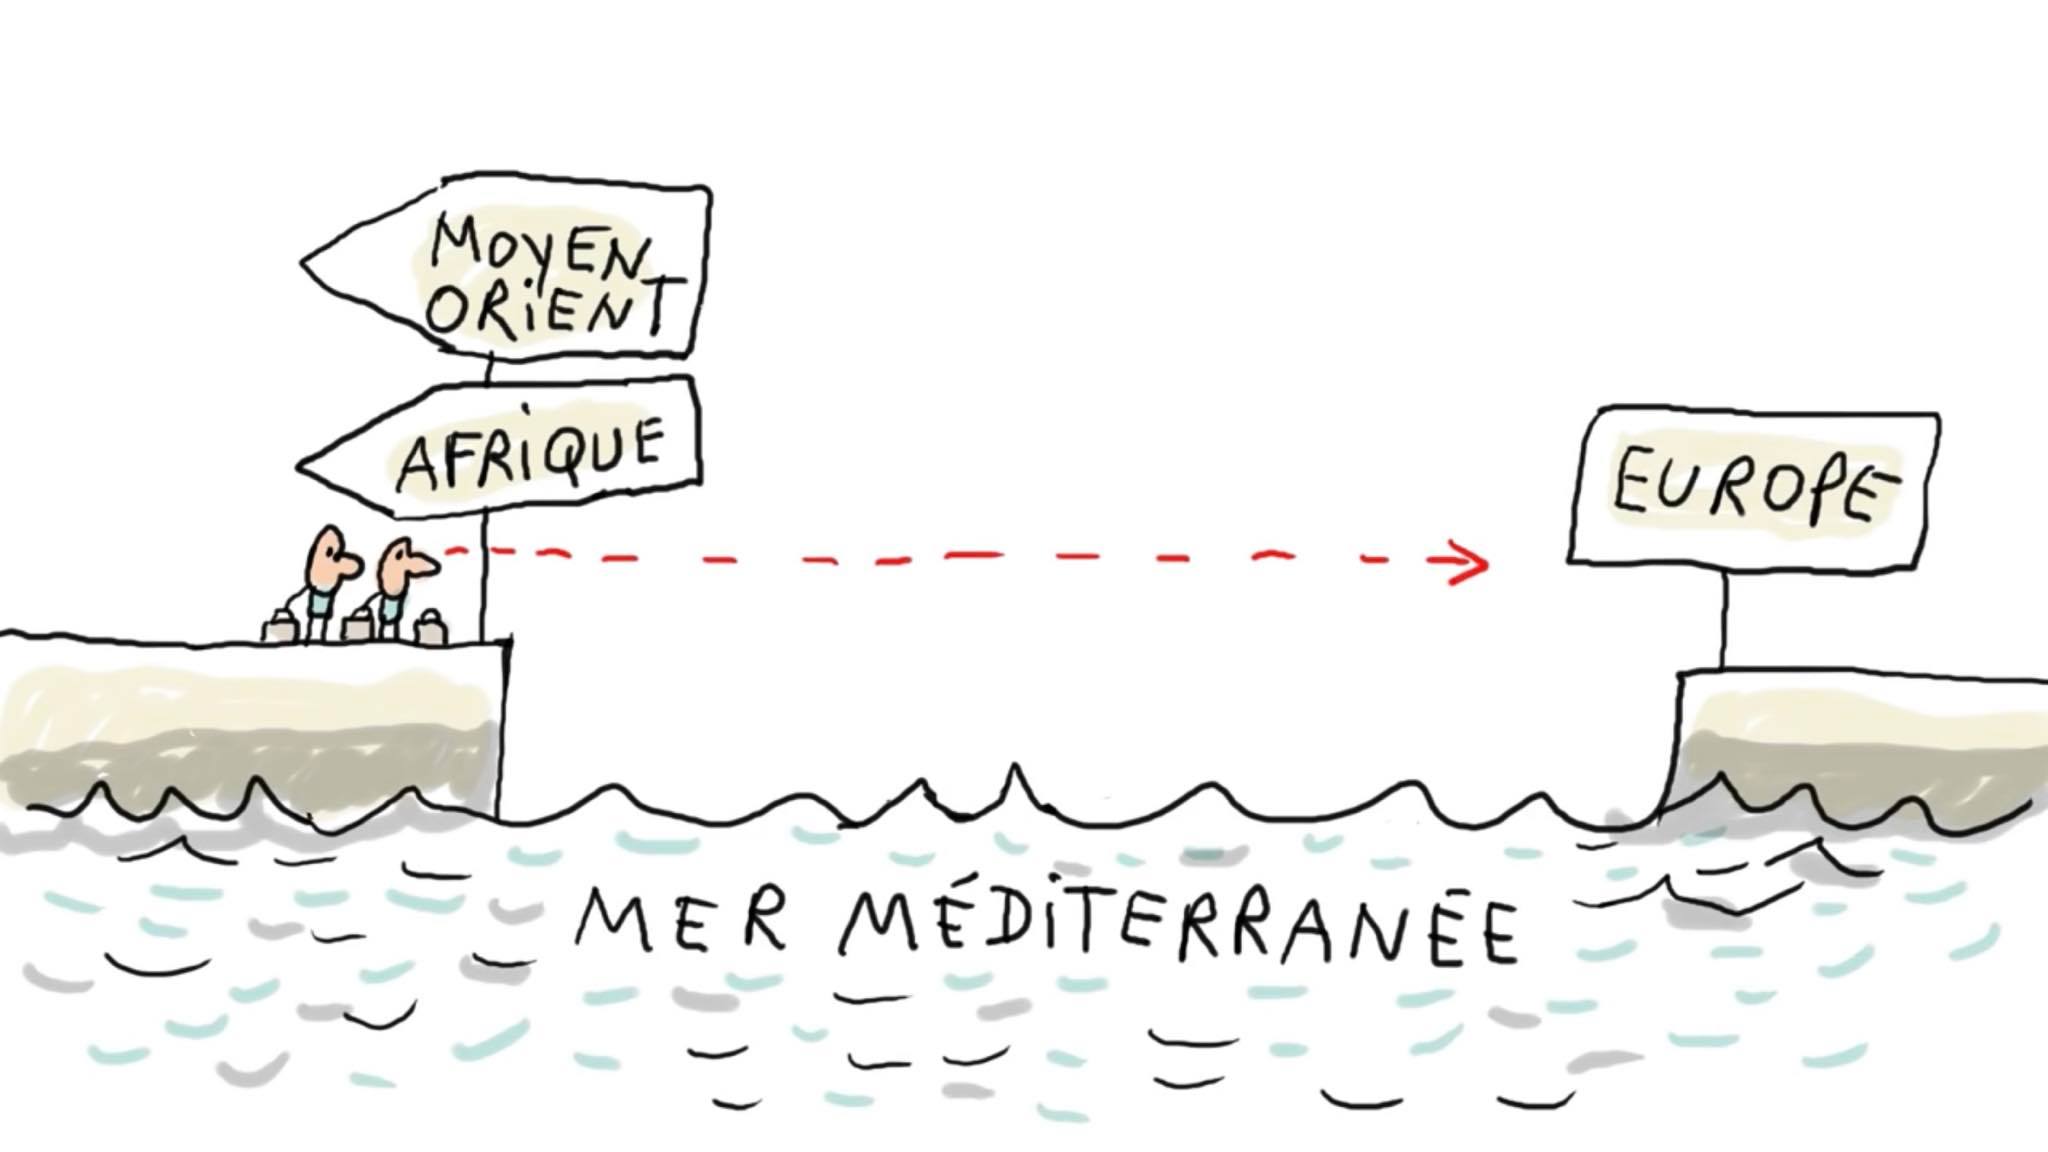 MOYEN
ORIENT
AFRIQUE
EUROPE
MER MÉDITERRANÉE